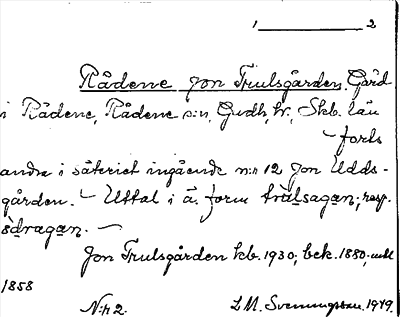 1 ———— 2
Rådene Jon Trulsgården. Gård
i Rådene, Rådene s:n, Gudh. hr, Skb. län
– forts
andra i säteriet ingående n:r 12 Jon Udds-
gården. – Uttal i ä. form trulsagan; resp.
sdragan. –
Jon Trulsgården kb. 1930; bek. 1880; mtl
1858
N:r 2. L.M. Svenungsson. 1949.